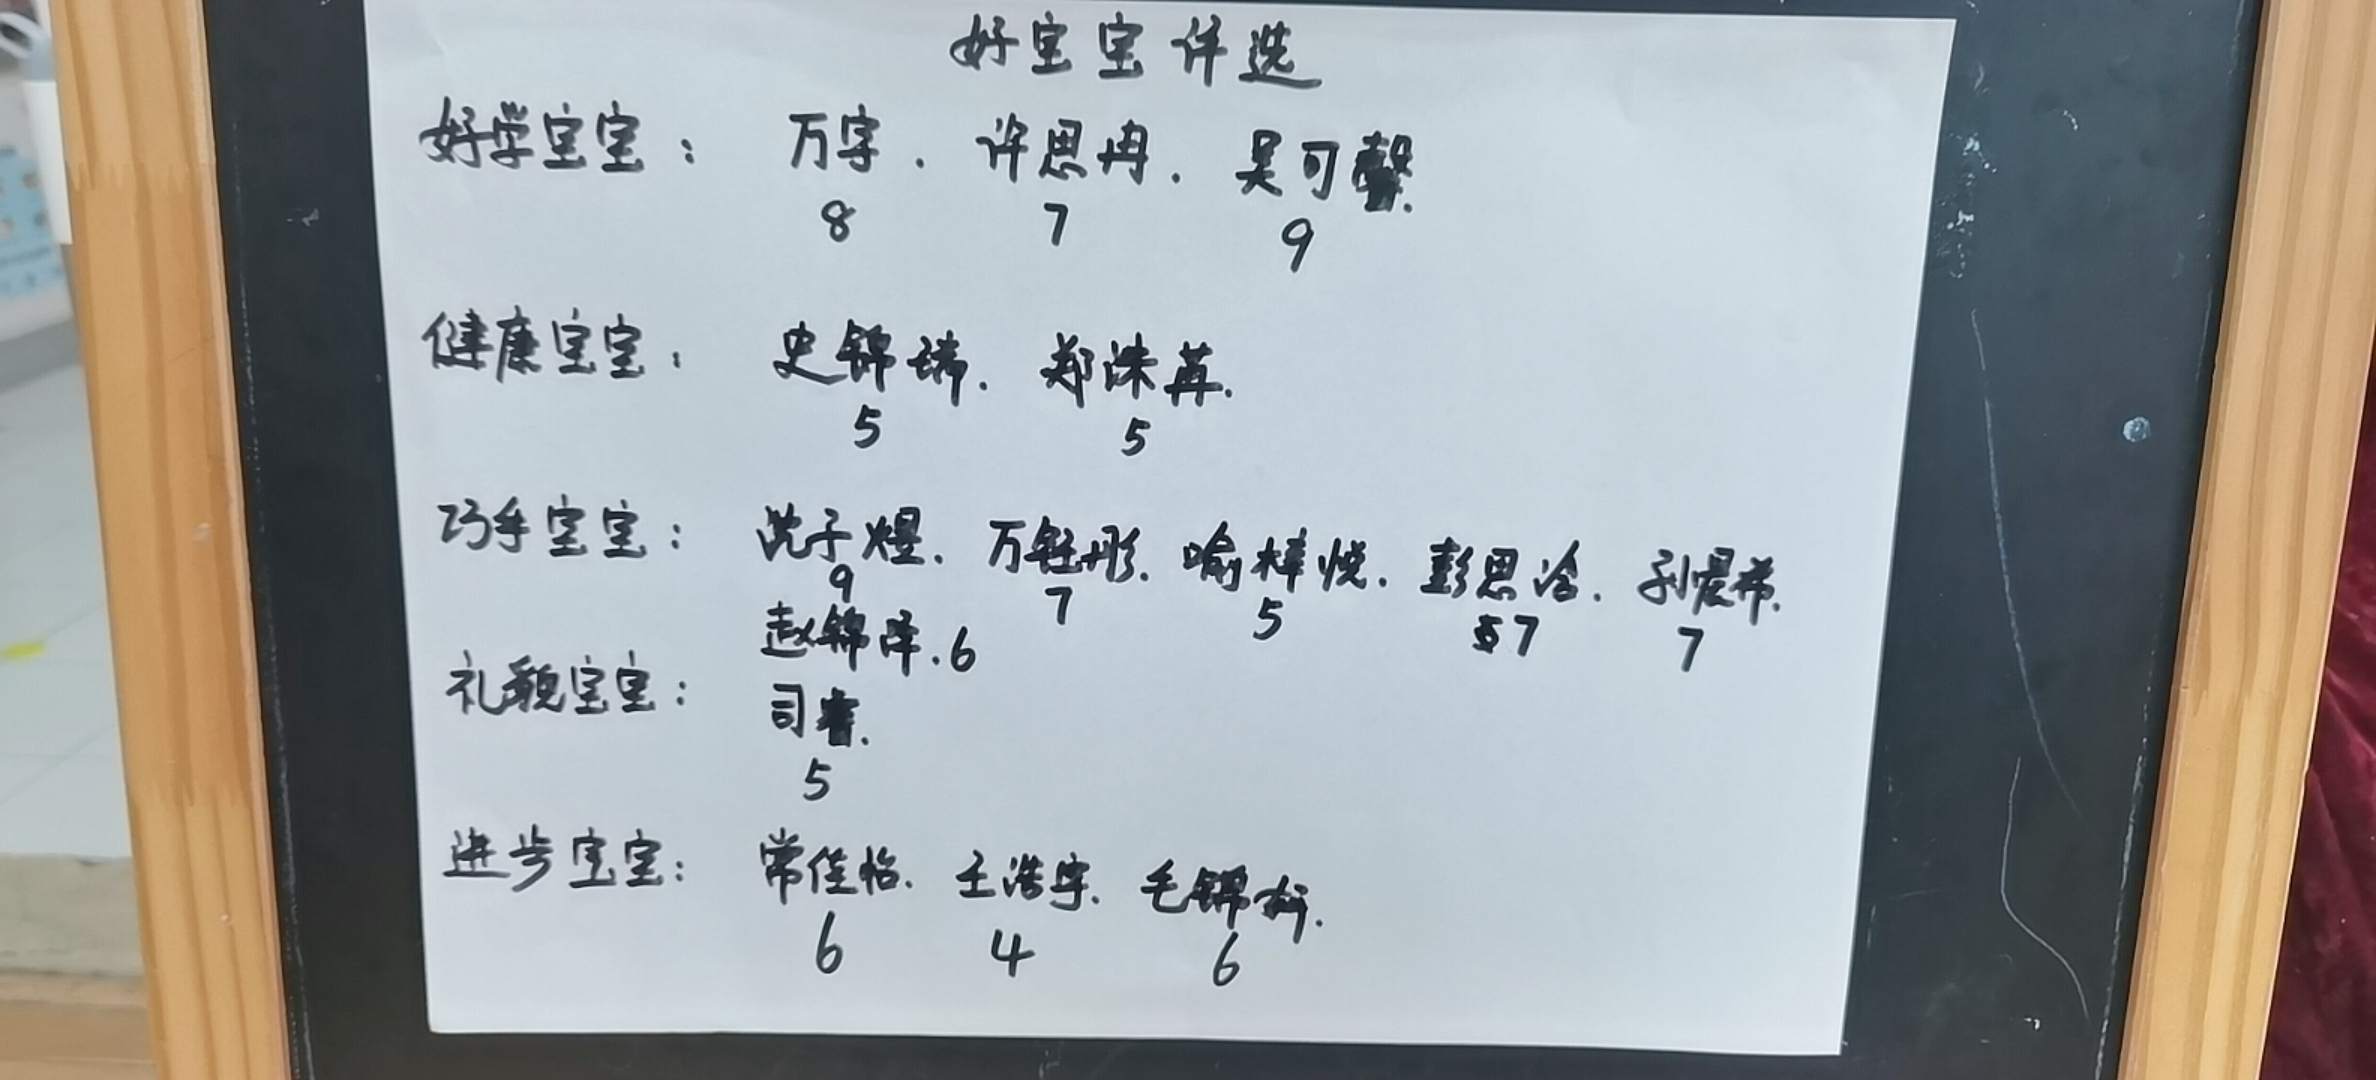 好宝宝评选
好学宝宝： 万宇. 许思冉. 吴可馨.
8 7 9
健康宝宝： 史锦瑞. 郑洙苒.
5 5
巧手宝宝： 沈子煜. 万钰彤. 喻梓悦. 彭思涵. 孙晨希.
9 7 5 7 7
赵锦泽. 6
礼貌宝宝： 司睿.
5
进步宝宝： 常佳怡. 王浩宇. 毛锦妍.
6 4 6